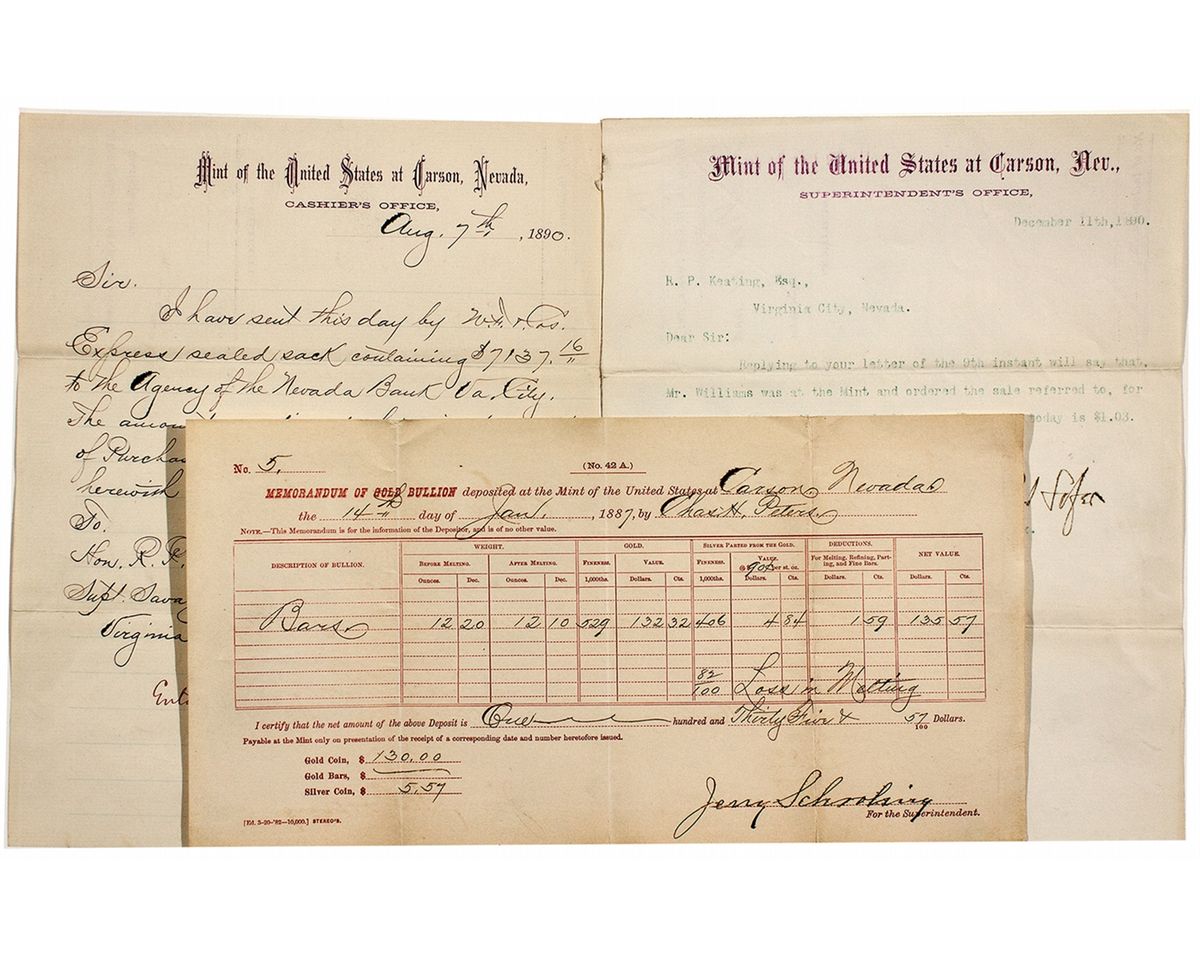 Mint of the United States at Carson, Nevada,
CASHIER'S OFFICE,
Aug. 7th, 1890.
Sir.
I have sent this day by W.F. & Co's.
Express sealed sack containing $7137.16
to the Agency of the Nevada Bank Va. City.
The amou
of Purchas
herewith
To.
Hon. R. P.
Supt. Sava
Virginia
Mint of the United States at Carson, Nev.,
SUPERINTENDENT'S OFFICE,
December 11th,1890.
R. P. Keating, Esq.,
Virginia City, Nevada.
Dear Sir:
Replying to your letter of the 9th instant will say that,
Mr. Williams was at the Mint and ordered the sale referred to, for
today is $1.03.
No. 5. (No. 42 A.)
MEMORANDUM OF GOLD BULLION deposited at the Mint of the United States at Carson Nevada
the 14th day of Jan., 1887, by Chas. H. Peters
NOTE.—This Memorandum is for the information of the Depositor, and is of no other value.
DESCRIPTION OF BULLION. WEIGHT. GOLD. SILVER PARTED FROM THE GOLD. DEDUCTIONS. NET VALUE.
BEFORE MELTING. AFTER MELTING. FINENESS. VALUE. FINENESS. VALUE. @ 90¢ per st. oz. For Melting, Refining, Parting, and Fine Bars.
Ounces. Dec. Ounces. Dec. 1,000ths. Dollars. Cts. 1,000ths. Dollars. Cts. Dollars. Cts. Dollars. Cts.
Bars 12 20 12 10 529 132 32 406 4 84 1 59 135 57
82/100 Loss in Melting
I certify that the net amount of the above Deposit is One hundred and Thirty Five & 57/100 Dollars.
Payable at the Mint only on presentation of the receipt of a corresponding date and number heretofore issued.
Gold Coin, $ 130.00
Gold Bars, $
Silver Coin, $ 5.57
For the Superintendent.
[Ed. 3-20-'82—10,000.] STEREO'S.